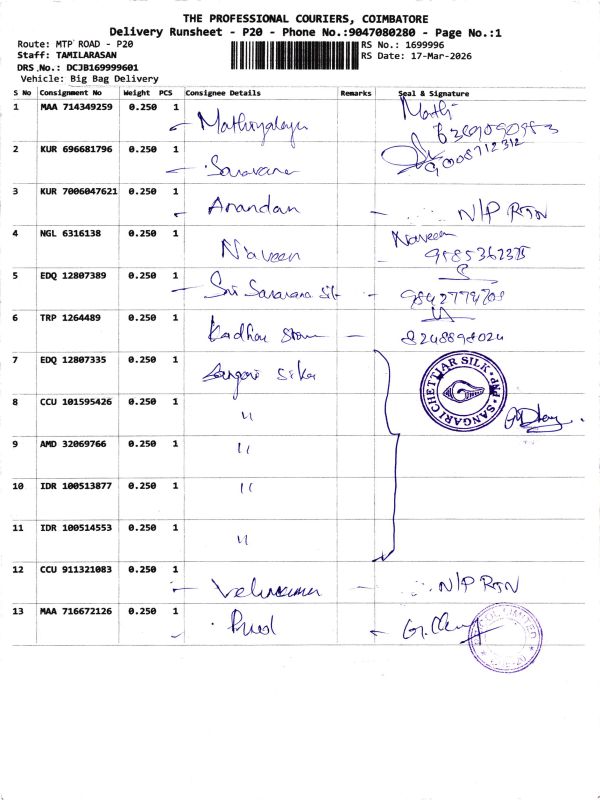 THE PROFESSIONAL COURIERS, COIMBATORE
Delivery Runsheet - P20 - Phone No.:9047080280 - Page No.:1
Route: MTP ROAD - P20
RS No.: 1699996
Staff: TAMILARASAN
RS Date: 17-Mar-2026
DRS No.: DCJB169999601
Vehicle: Big Bag Delivery
S No Consignment No Weight PCS Consignee Details Remarks Seal & Signature
1 MAA 714349259 0.250 1
2 KUR 696681796 0.250 1 Saravana
3 KUR 7006047621 0.250 1 Anandan N/P RTN
4 NGL 6316138 0.250 1 Naveen Naveen
5 EDQ 12807389 0.250 1 Sri Saravana
6 TRP 1264489 0.250 1
7 EDQ 12807335 0.250 1
SANGARI CHETTIAR SILK
8 CCU 101595426 0.250 1 "
9 AMD 32069766 0.250 1 "
10 IDR 100513877 0.250 1 "
11 IDR 100514553 0.250 1 "
12 CCU 911321083 0.250 1 N/P RTN
13 MAA 716672126 0.250 1